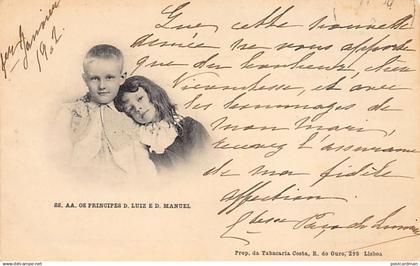 1er Janvier
1902
Que cette nouvelle
année ne vous apporte
que du bonheur, chère
Vicomtesse, et avec
les hommages de
mon mari,
recevez l'assurance
de ma fidèle
affection
SS. AA. OS PRINCIPES D. LUIZ E D. MANUEL
Prop. da Tabacaria Costa, R. do Ouro, 295 Lisboa